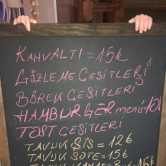 KAHVALTI = 15₺
GÖZLEME ÇEŞİTLERİ
BÖREK ÇEŞİTLERİ
HAMBURGER menü 10₺
TOST ÇEŞİTLERİ
TAVUK ŞİŞ = 12₺
TAVUK SOTE = 15₺